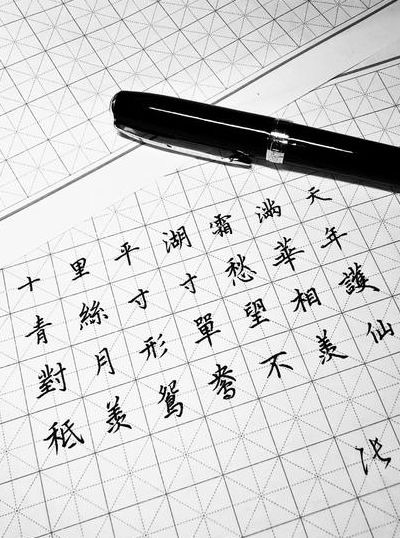 十里平湖霜满天
青絲寸寸愁華年
對月形單望相護
秪羡鴛鴦不羡仙